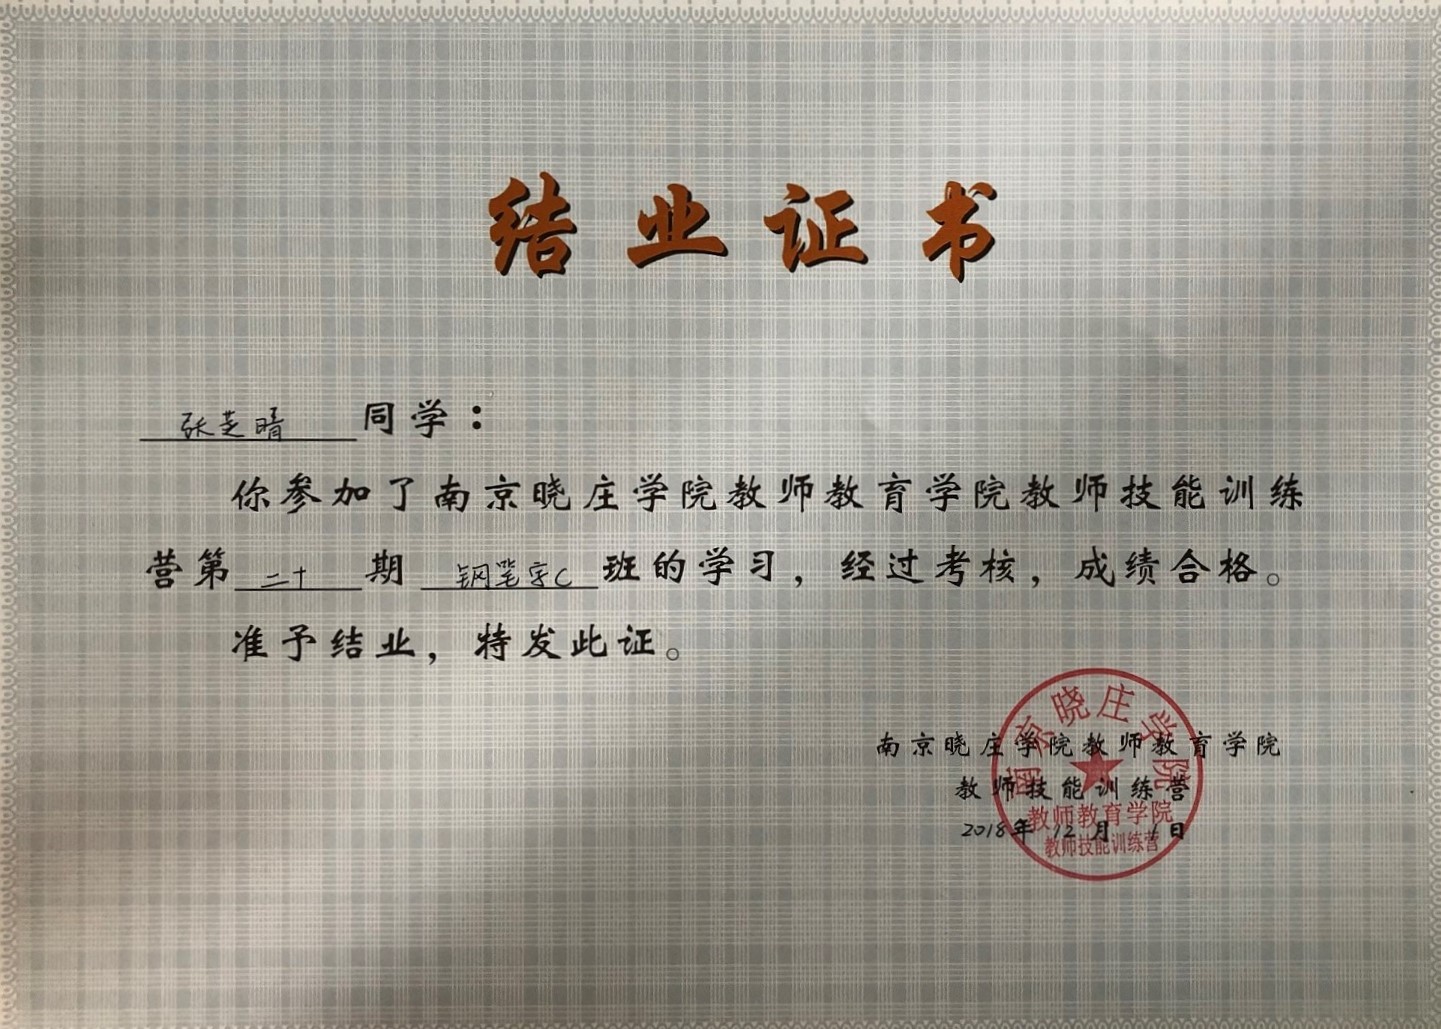 结业证书
张芝晴同学：
你参加了南京晓庄学院教师教育学院教师技能训练
营第二十期 钢笔字C 班的学习，经过考核，成绩合格。
准予结业，特发此证。
南京晓庄学院教师教育学院
教师技能训练营
2018年 12月 1日
南京晓庄学院
教师教育学院
教师技能训练营